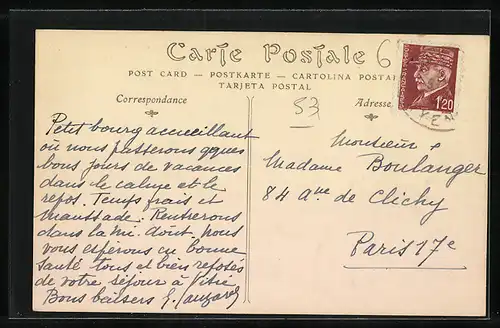 Carte Postale 6
POST CARD — POSTKARTE — CARTOLINA POSTAL
TARJETA POSTAL
Correspondance
53
Adresse
1f20
VEN
Petit bourg accueillant
où nous passerons qques
bons jours de vacances
dans le calme et le
repos. Temps frais et
maussade. Rentrerons
dans la mi-août. Nous
vous espérons en bonne
santé tous et bien reposés
de votre séjour à
Bons baisers
Monsieur &
Madame Boulanger
84 Ave de Clichy
Paris 17e